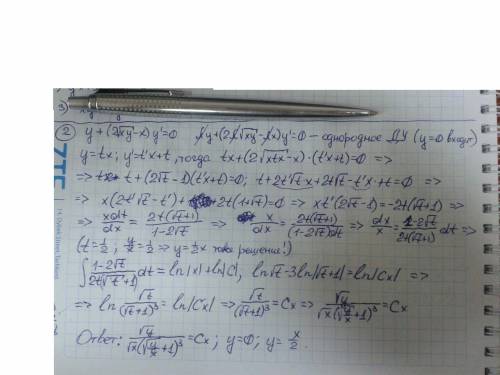 3)
② y+(2√xy-x)y'=0 ky+(2k√xy-kx)y'=0 – однородное ДУ (y=0 входит)
y=tx; y'=t'x+t, тогда tx+(2√(tx²)-x)·(t'x+t)=0 =>
=> t+(2√t-1)(t'x+t)=0; t+2t'√t·x+2t√t-t'x-t=0 =>
=> x(2t'√t-t')+2t(1+√t)=0 => xt'(2√t-1)=-2t(√t+1) =>
=> xdt/dx = 2t(√t+1)/(1-2√t) => x/dx = 2t(√t+1)/((1-2√t)dt) => dx/x = (1-2√t)/(2t(√t+1)) dt =>
(t=½; y/x=½ => y=½x тоже решение!)
∫(1-2√t)/(2t(√t+1))dt = ln|x|+ln|C|, ln√t-3ln|√t+1|=ln|Cx| =>
=> ln √t/(√t+1)³ = ln|Cx| => √t/(√t+1)³=Cx => √y/(√x(√(y/x)+1)³)=Cx
Ответ: √y/(√x(√(y/x)+1)³)=Cx; y=0; y=x/2.